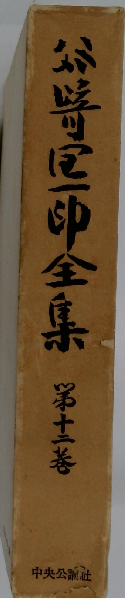 谷崎潤一郎全集
第十二巻
中央公論社